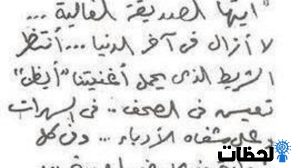 أيتها الصديقة الغالية ...
لا أزال في آخر الدنيا ... أنتظر
الشريط الذي يحمل أغنيتنا "أيظن"
تعيس في الصحف .. في السهرات
على شفاه الأدباء ... وفي كل
لحظات